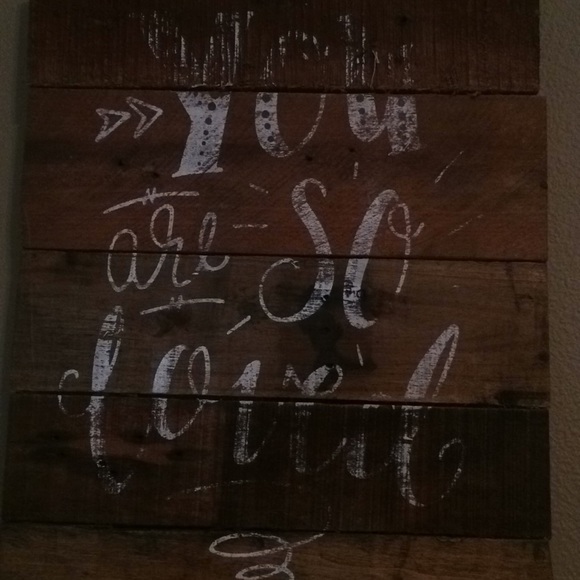 You
are so
loved